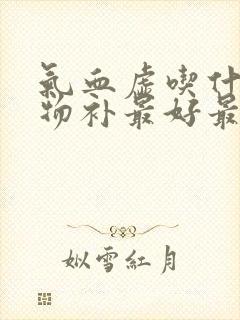 氣血虛喫什
物补最好最
姒雪紅月